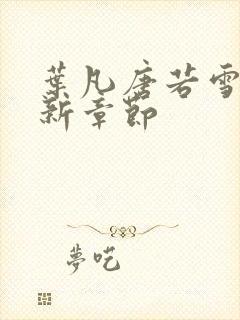 葉凡唐若雪
新章節
夢吃